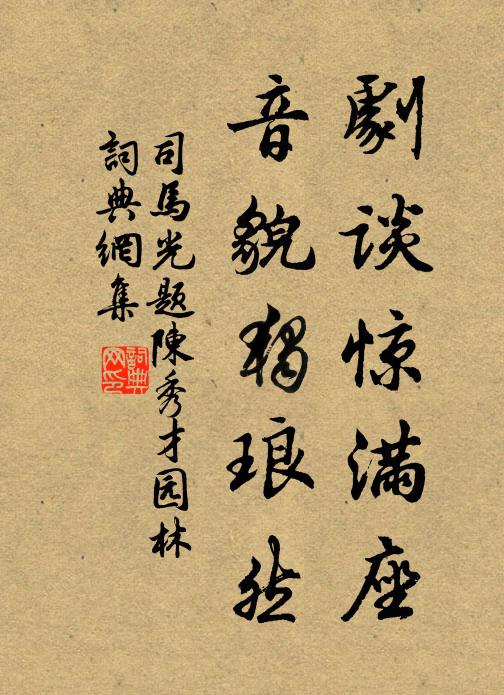 劇談惊满座
音貌獨琅然
司馬光题陳秀才园林
詞典網集
詞典网印